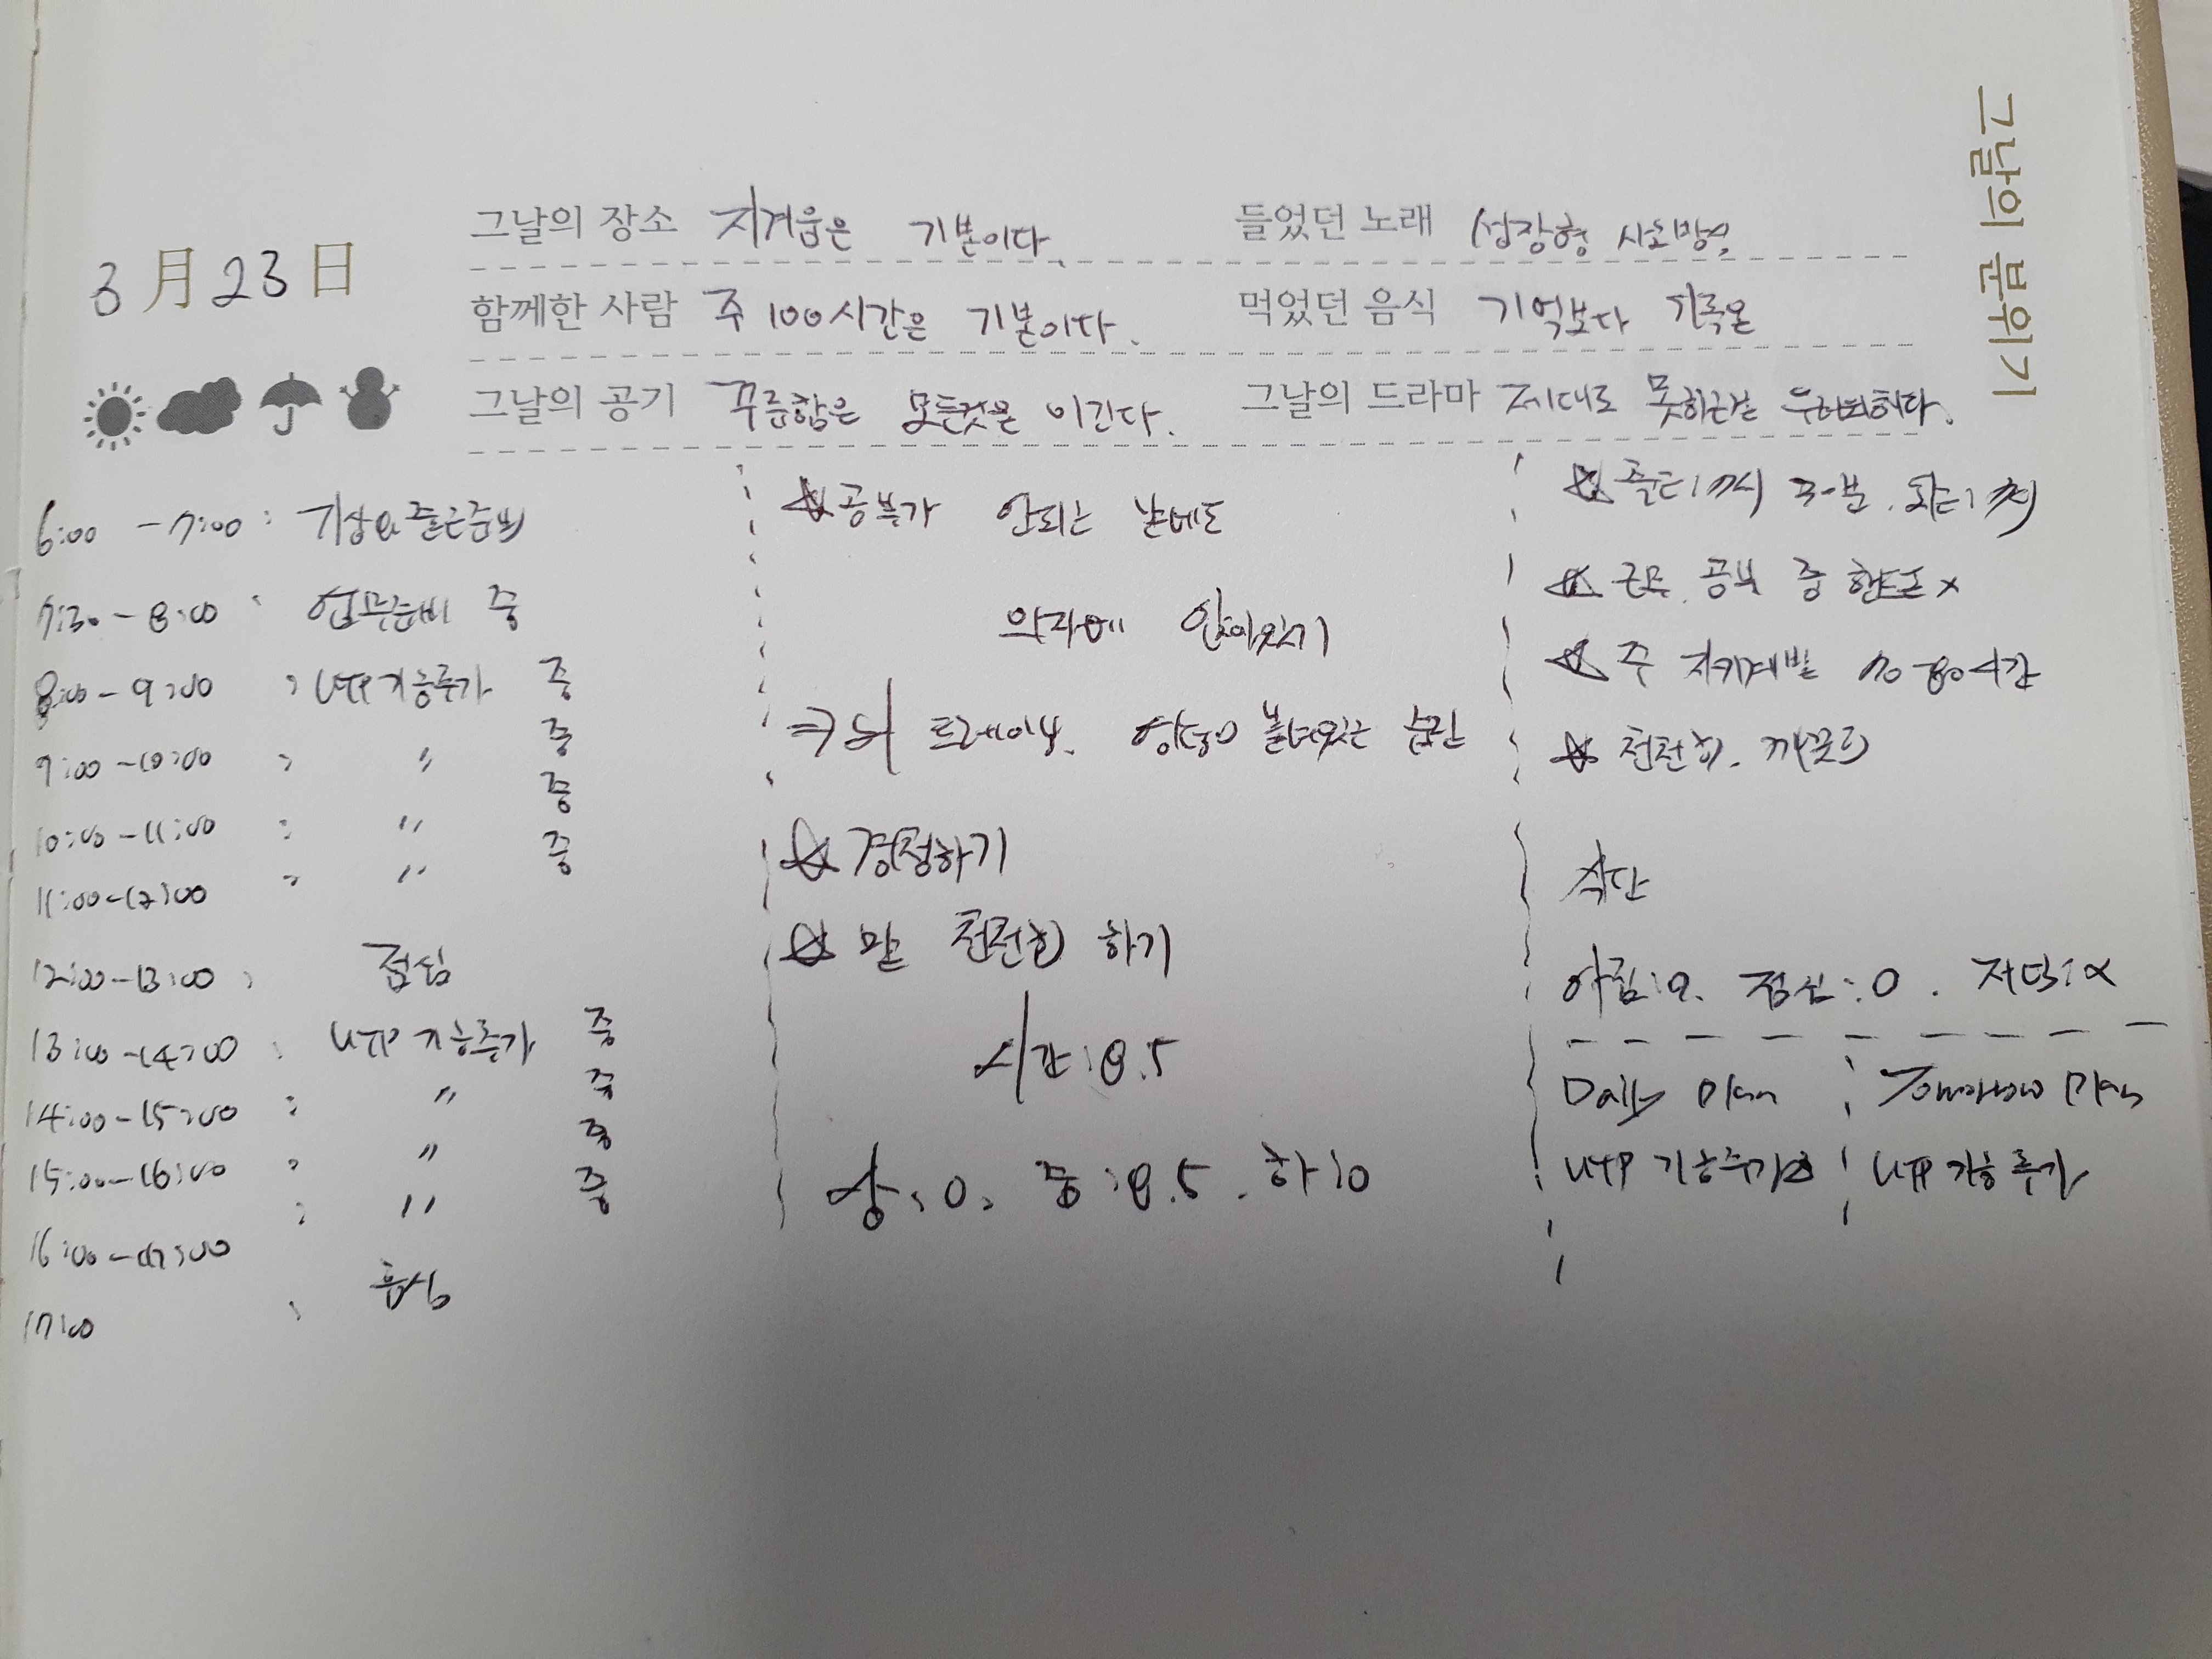 그날의 분위기
3月 23日
그날의 장소 지겨움은 기본이다.
함께한 사람 주 100시간은 기본이다.
그날의 공기 꾸준함은 모든것을 이긴다.
들었던 노래 성장형 사고방식
먹었던 음식 기억보다 기록을
그날의 드라마 제대로 못하는건
6:00 - 7:00 : 기상 및 출근준비
7:30 - 8:00 : 업무준비 중
8:00 - 9:00 : UTP 기능추가 중
9:00 - 10:00 : " 중
10:00 - 11:00 : " 중
11:00 - 12:00 : " 중
12:00 - 13:00 : 점심
13:00 - 14:00 : UTP 기능추가 중
14:00 - 15:00 : " 중
15:00 - 16:00 : " 중
16:00 - 17:00 : " 중
17:00 : 휴식
☆ 공부가 안되는 날에도
의자에 앉아있기
⇒ 뇌 트레이닝.
☆ 경청하기
☆ 말 천천히 하기
시간 : 8.5
상 : 0, 중 : 8.5, 하 : 0
☆ 출근 : 7시
☆ 근무, 공부 중 핸드폰 x
☆ 주 자기계발 70-80시간
☆ 천천히,
식단
아침 : 0. 점심 : 0. 저녁 : x
Daily Plan
UTP 기능추가
Tomorrow Plan
UTP 기능추가